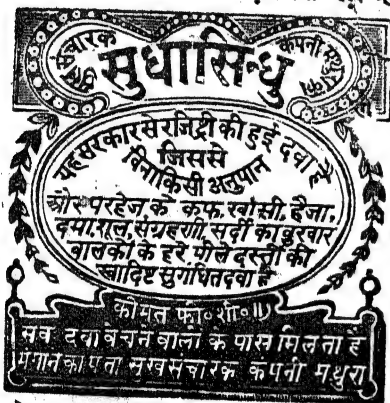 सुखसंचारक कंपनी मथुरा का
सुधासिन्धु
यह सरकार से रजिट्री की हुई दवा है
जिससे
बिना किसी अनुपान
और परहेज के कफ, खांसी, हैजा,
दमा, शूल, संग्रहणी, सर्दी का बुखार
बालकों के हरे पीले दस्तों की
स्वादिष्ट सुगंधित दवा है
कीमत फी० शी० ॥)
सब दवा बेचने वालों के पास मिलता है
मंगाने का पता सुखसंचारक कंपनी मथुरा